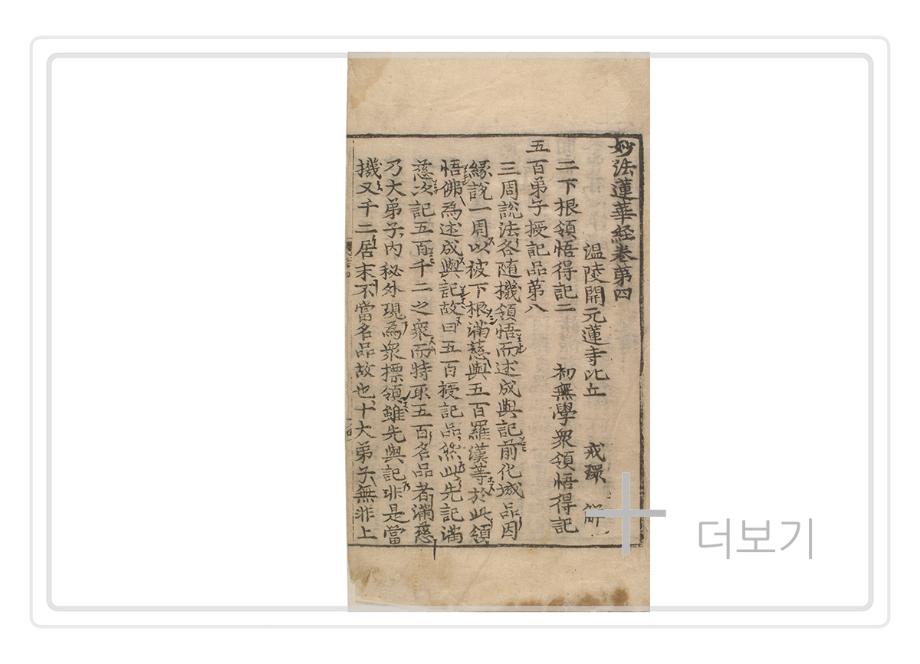 妙法蓮華経巻第四
温陵開元蓮寺比丘 戒環 解
二下根領悟得記二 初無學衆領悟得記
五百弟子授記品第八
三周說法各隨機領悟而述成與記前化城品因
緣說一周以被下根滿慈與五百羅漢等於此領
悟佛爲述成與記故曰五百授記品然此先記滿
慈次記五百千二之衆而特取五百名品者滿慈
乃大弟子內秘外現爲衆標領雖先與記非是當
機又千二居末不當名品故也十大弟子無非上
더보기